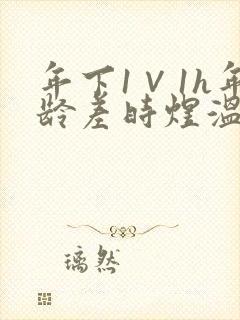 年下1V1h年
龄差时煜温
璃然